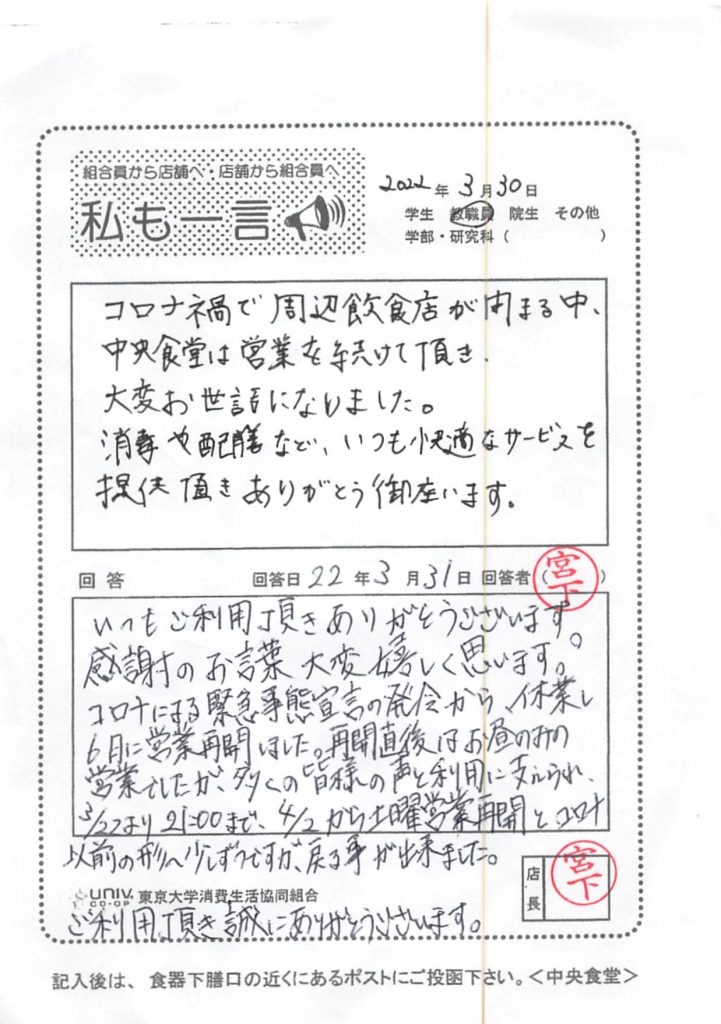 組合員から店舗へ・店舗から組合員へ
私も一言
2022年3月30日
学生 教職員 院生 その他
学部・研究科( )
コロナ禍で周辺飲食店が閉まる中、
中央食堂は営業を続けて頂き、
大変お世話になりました。
消毒や配膳など、いつも快適なサービスを
提供頂きありがとう御座います。
回答 回答日22年3月31日 回答者(宮下)
いつもご利用頂きありがとうございます。
感謝のお言葉大変嬉しく思います。
コロナによる緊急事態宣言の発令から、休業し
6月に営業再開しました。再開直後はお昼のみの
営業でしたが、多くの皆様の声と利用に支えられ、
3/22より21:00まで、4/2から土曜営業再開とコロナ
以前の形へ少しずつですが、戻る事が出来ました。
店長 宮下
UNIV. CO-OP 東京大学消費生活協同組合
ご利用頂き誠にありがとうございます。
記入後は、食器下膳口の近くにあるポストにご投函下さい。<中央食堂>